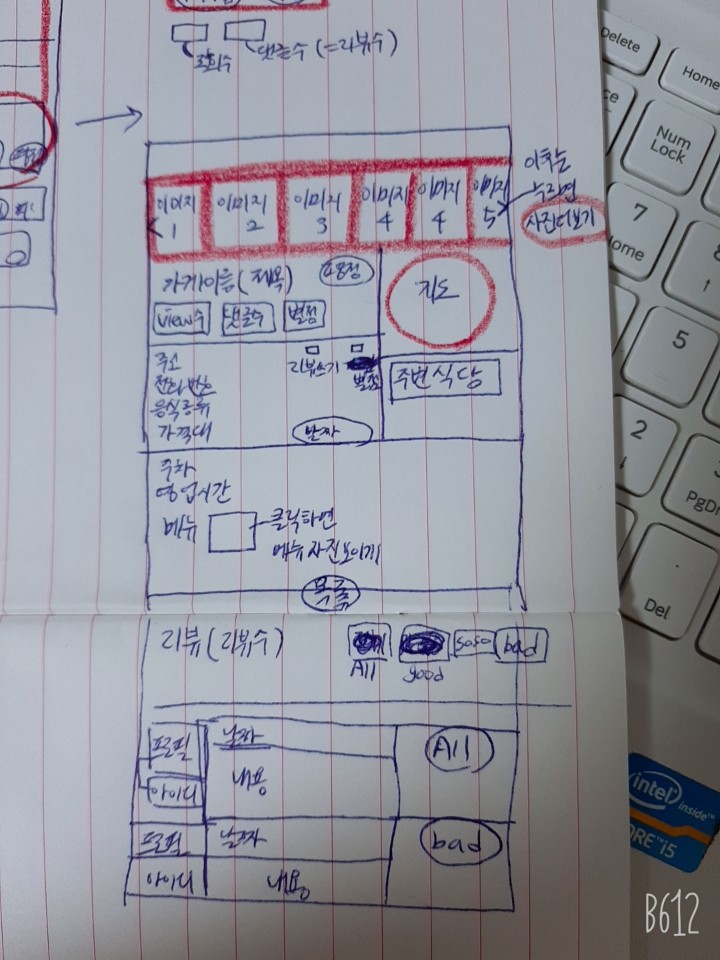 조회수
댓글수 (=리뷰수)
이미지 1
이미지 2
이미지 3
이미지 4
이미지 4
이미지 5
이쪽을
누르면
사진더보기
가게이름(제목)
view수
댓글수
별점
지도
주소
전화번호
음식종류
가격대
리뷰쓰기
날짜
주변식당
주차
영업시간
메뉴
클릭하면
메뉴 사진보이게
리뷰 (리뷰수)
All
good
soso
bad
프로필
아이디
날짜
내용
All
프로필
아이디
날짜
내용
bad
Delete
Home
Num
Lock
7
Home
8
5
2
1
PgDn
Del
intel
inside
CORE i5
B612